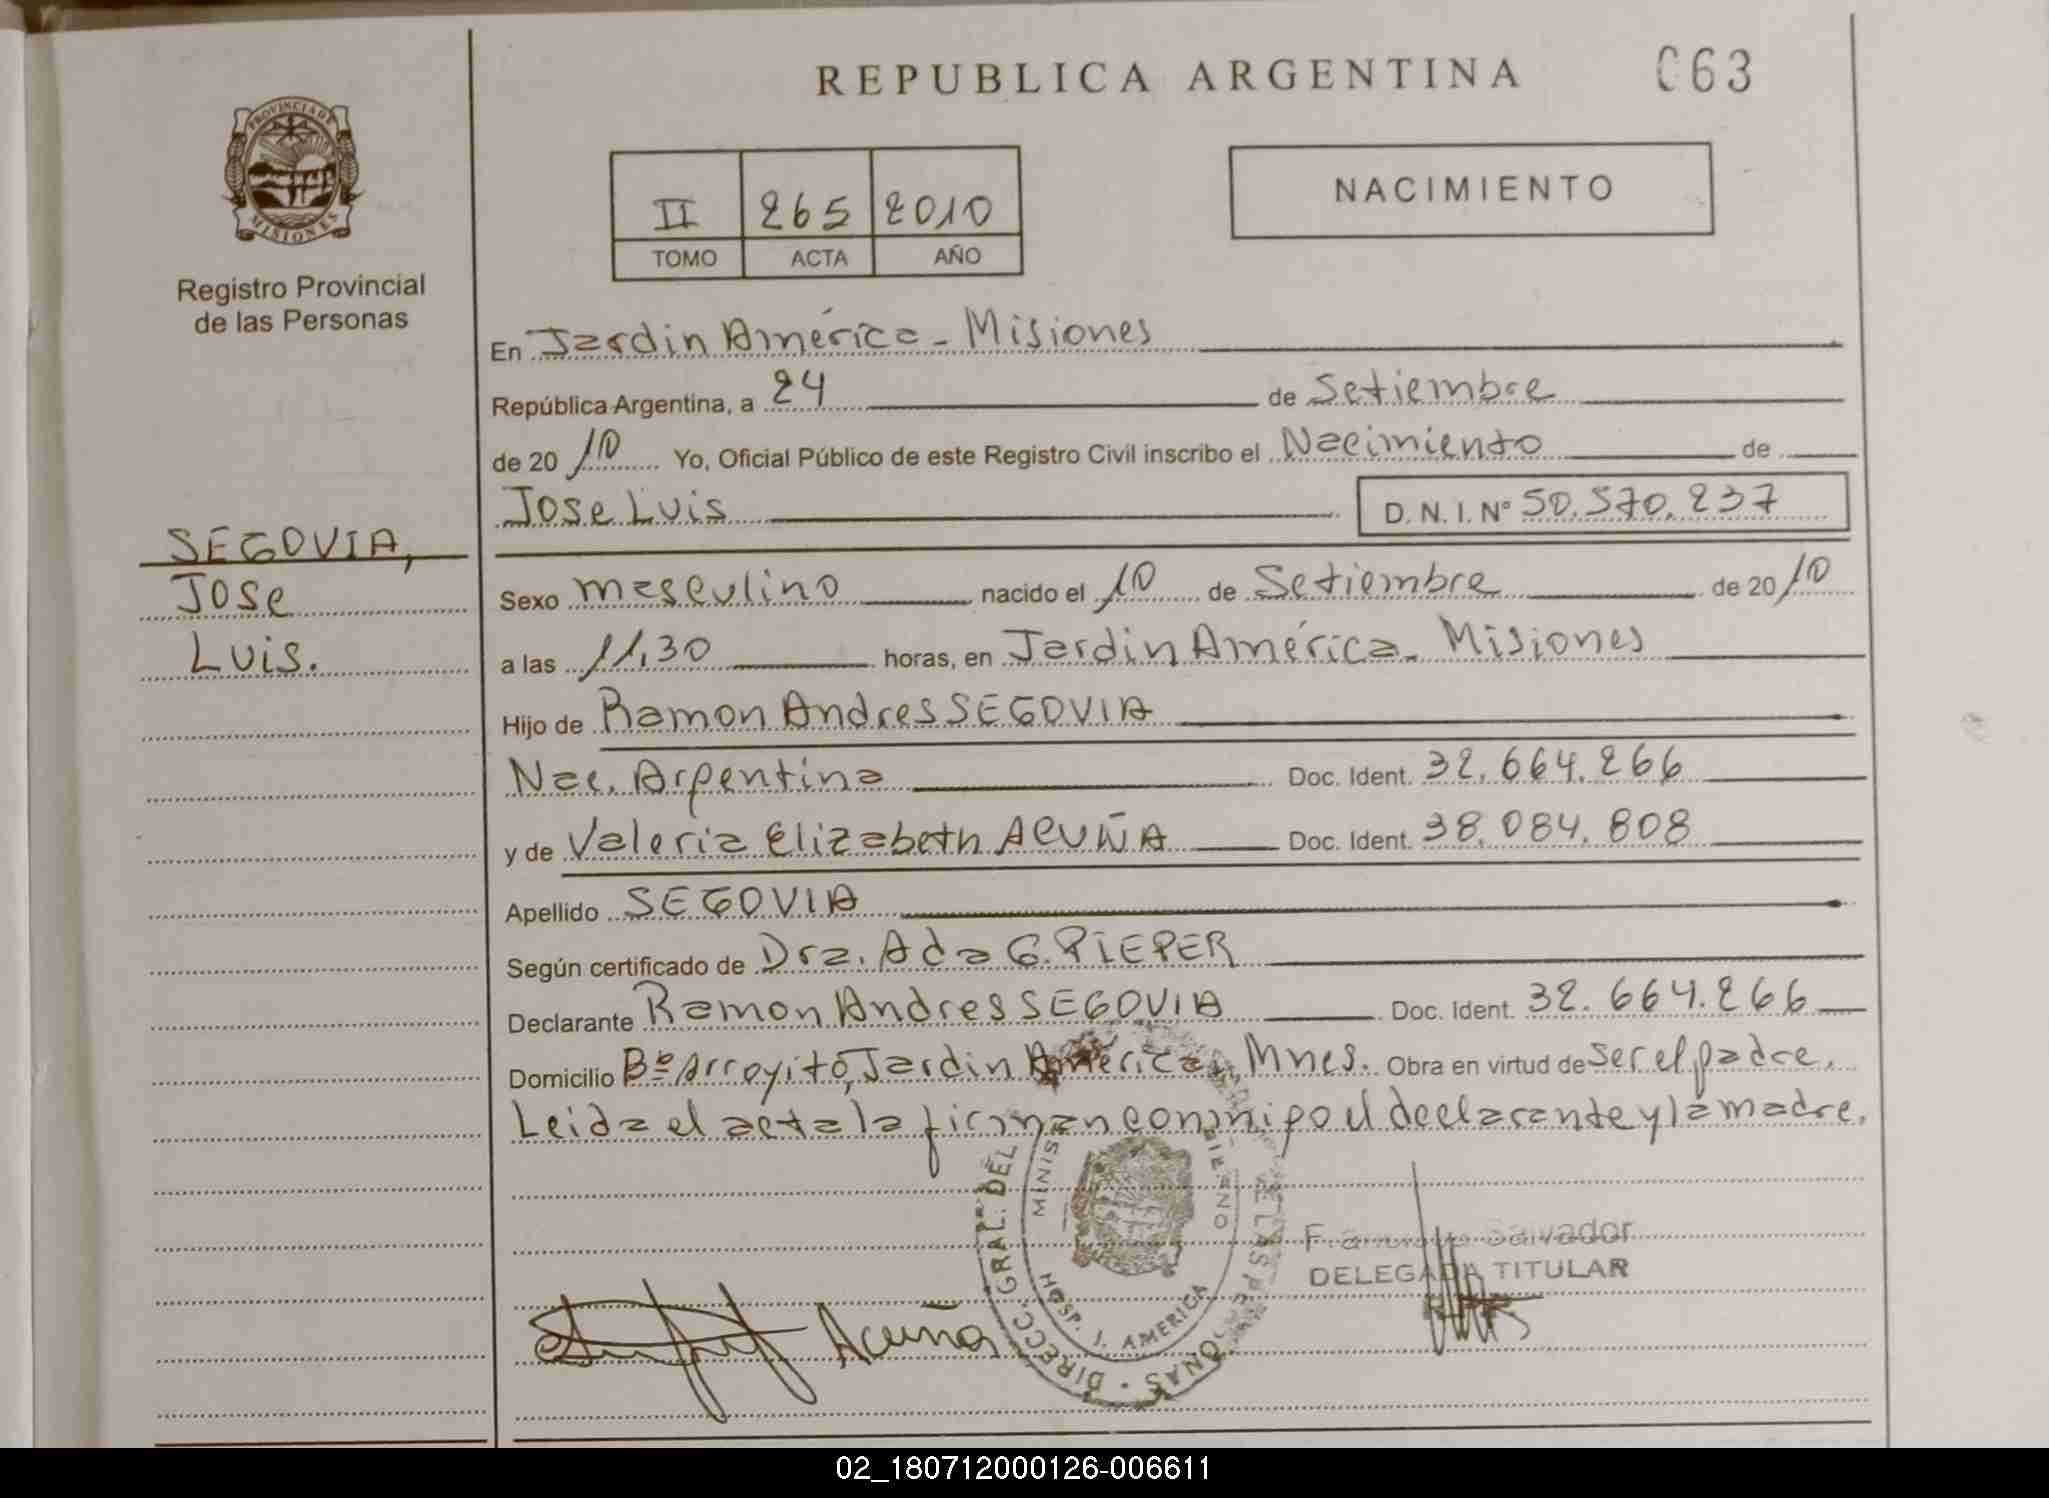 REPUBLICA ARGENTINA
063
PROVINCIA DE
MISIONES
Registro Provincial
de las Personas
II 265 2010
TOMO ACTA AÑO
NACIMIENTO
En Jardin América - Misiones
República Argentina, a 24 de Setiembre
de 20 10 Yo, Oficial Público de este Registro Civil inscribo el Nacimiento de
Jose Luis D.N.I. Nº 50.570.237
SEGOVIA,
Jose
Luis.
Sexo masculino nacido el 10 de Setiembre de 20 10
a las 11,30 horas, en Jardin América - Misiones
Hijo de Ramon Andres SEGOVIA
Nac. Argentina Doc. Ident. 32.664.266
y de Valeria Elizabeth ACUÑA Doc. Ident. 38.084.808
Apellido SEGOVIA
Según certificado de Dra. Ada G. PIEPER
Declarante Ramon Andres SEGOVIA Doc. Ident. 32.664.266
Domicilio Bº Arroyito, Jardin América, Mnes. Obra en virtud de ser el padre.
Leida el acta la firman conmigo el declarante y la madre.
DIRECC. GRAL. DEL
HOSP. J. AMERICA
Salvador
DELEGADA TITULAR
Acuña
02_180712000126-006611